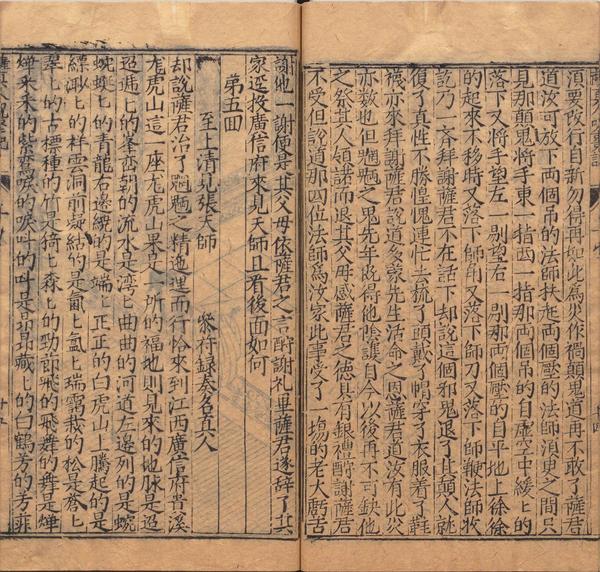 須要改行自新勿得再如此為災作禍顛鬼道再不敢了薩君
道汝可放下两個吊的法師扶起两個壓的法師須臾之間只
見那顛鬼將手東一指西一指那两個吊的自虛空中緩〻的
落下又將手望左一剔望右一剔那两個壓的自平地上徐徐
的起來不移時又落下師印又落下師刀又落下師鞭法師收
訖乃一斉拜謝薩君不在話下却說這個邪鬼退了其顛人就
復了真性不勝惶愧連忙去梳了頭戴了帽穿了衣服着了鞋
襪亦來拜謝薩君說道多蒙先生活命之恩薩君道汝有此災
亦数也但魍魎之鬼先年既得他陰護自今以後再不可缺他
之祭其人領諾而退其父母感薩君之德具有銀禮酧謝薩君
不受但說道那四位法師為汝家此事受了一塲的老大虧苦
謝他一謝便是其父母依薩君之言酧謝礼畢薩君遂辞了其
家逕投廣信府來見天師且看後面如何
第五回
至上清見張天師 参符録奏名真人
却說薩君治了魍魎之精迤逞而行恰來到江西廣信府貴溪
龙虎山這一座龙虎山果是一所的福地則見來的地脉是迢
迢逓〻的峯峦朝的流水是湾〻曲曲的河道左邊列的是蜿
蜿蜒〻的青龙右邊繞的是端〻正正的白虎山上騰起的是
縹渺〻的祥雲洞前凝結的是氤〻氲〻瑞靄栽的松是蒼〻
翠〻的古標種的竹是猗〻森〻的劲節飛的飛舞的舞是燁
燁来来的紫鸞唳的唳叫的叫是昂昂藏〻的白鶴芳的芳菲